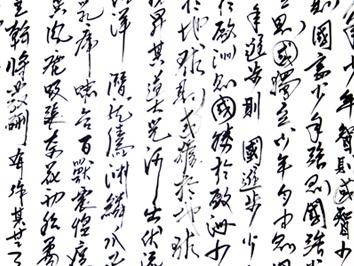 少年智則國智少
則國富少年強則國強
立則國獨立少年自由則國
年進步則國進步少
於歐洲則國勝於歐洲少
於地球則國雄於地球
升其道大光河出伏流
汪洋潛龍騰淵鱗爪
乳虎嘯谷百獸震惶
風塵翕張奇花初胎矞
皇干將發硎有作其芒